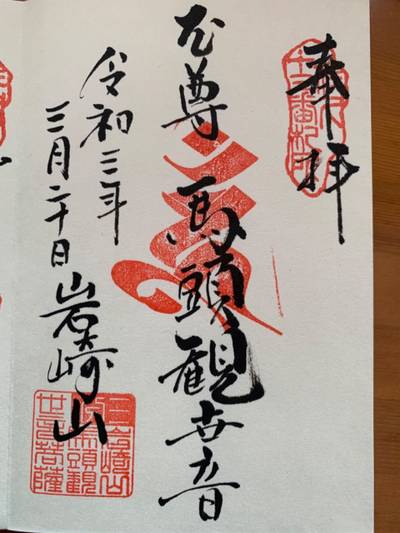 奉拝
本尊 馬頭観世音
令和三年
三月二十日
岩崎山
馬頭観
世音菩薩